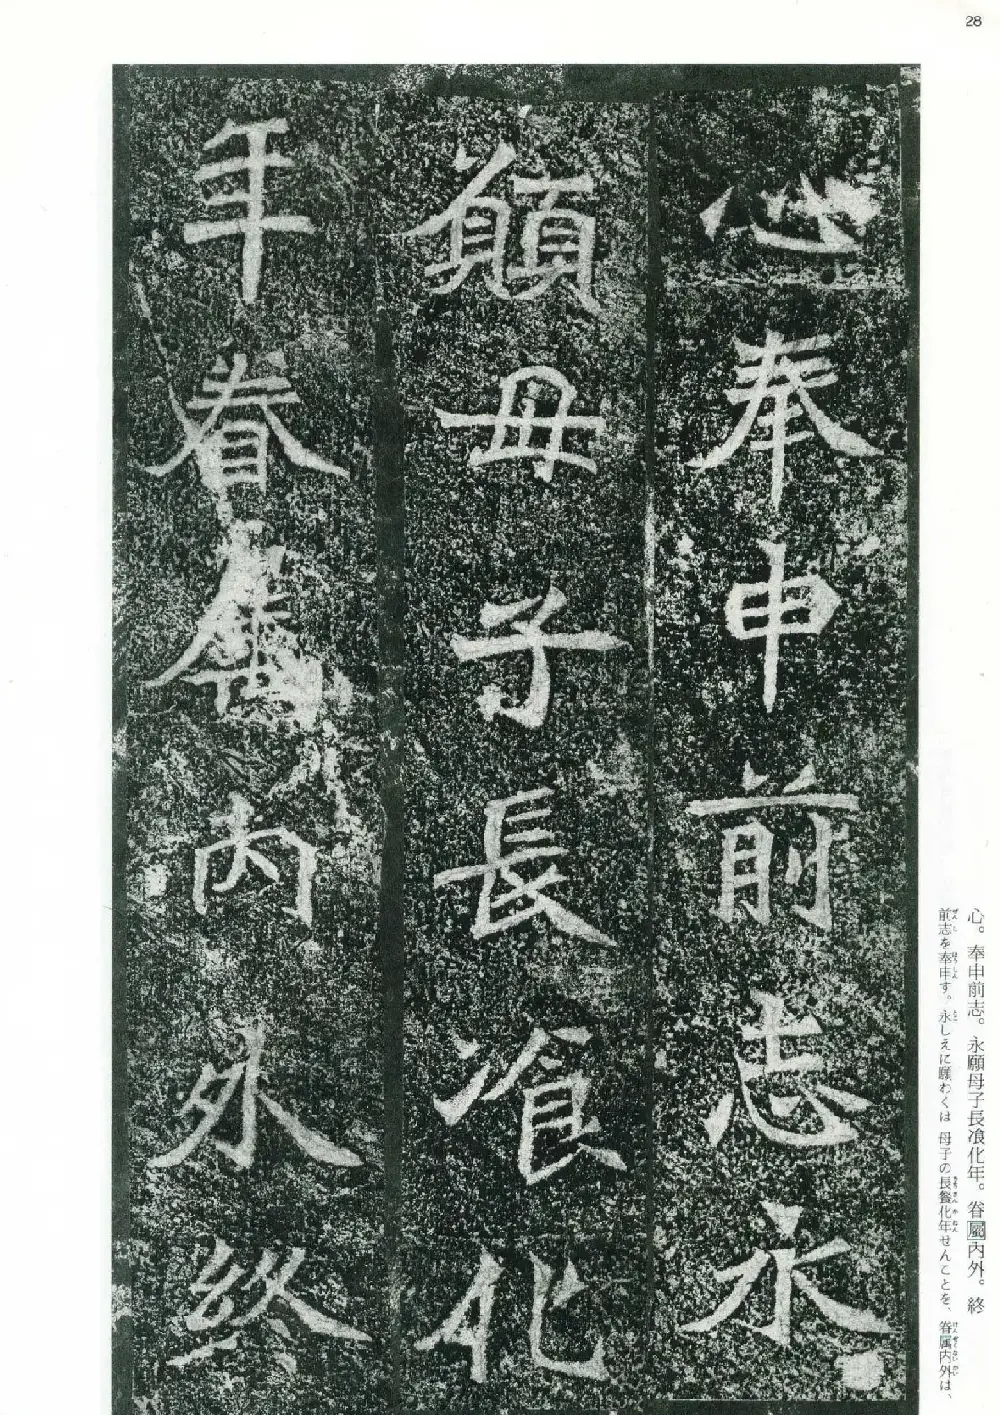 28
心奉申前志永
願母子長飡化
年眷屬內外終
心。奉申前志。永願母子長飡化年。眷屬内外。終
前志を奉申す。永しえに願わくは 母子の長餐化年せんことを、眷属内外は、